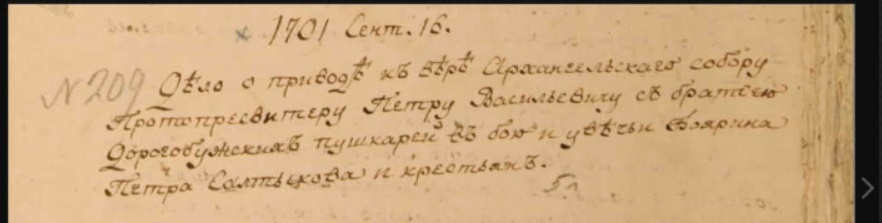 1701 Сент. 16.
№ 209 Дѣло о приводѣ къ вѣрѣ Архангельскаго собору
Протопресвитеру Петру Васильевичу съ братьею
Дорогобужскихъ пушкарей въ бою и увѣчьи боярина
Петра Салтыкова и крестьянъ.